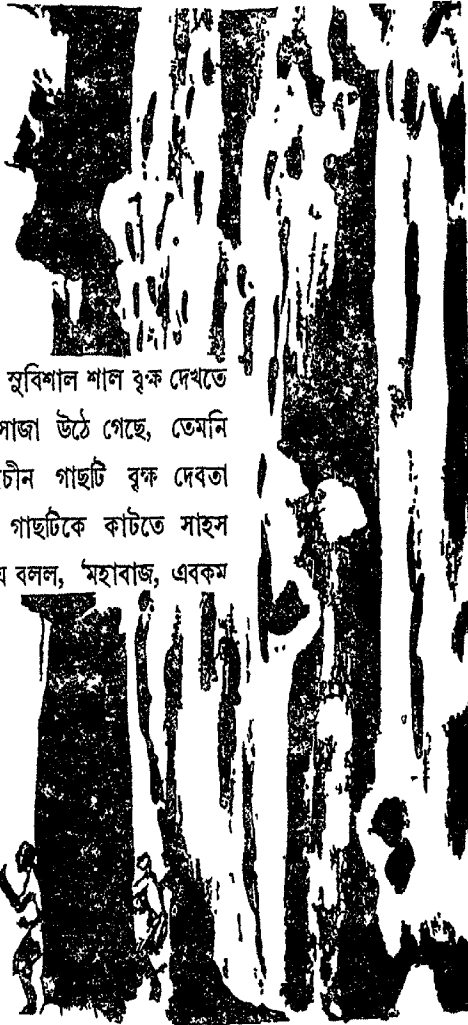 সুবিশাল শাল বৃক্ষ দেখতে
সাজা উঠে গেছে, তেমনি
চীন গাছটি বৃক্ষ দেবতা
গাছটিকে কাটতে সাহস
বলল, 'মহাবাজ, এবকম